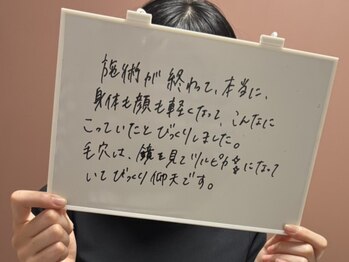 施術が終わって、本当に、
身体も顔も軽くなって、こんなに
こっていたとびっくりしました。
毛穴は、鏡を見てツルピカ
になって
いてびっくり仰天です。